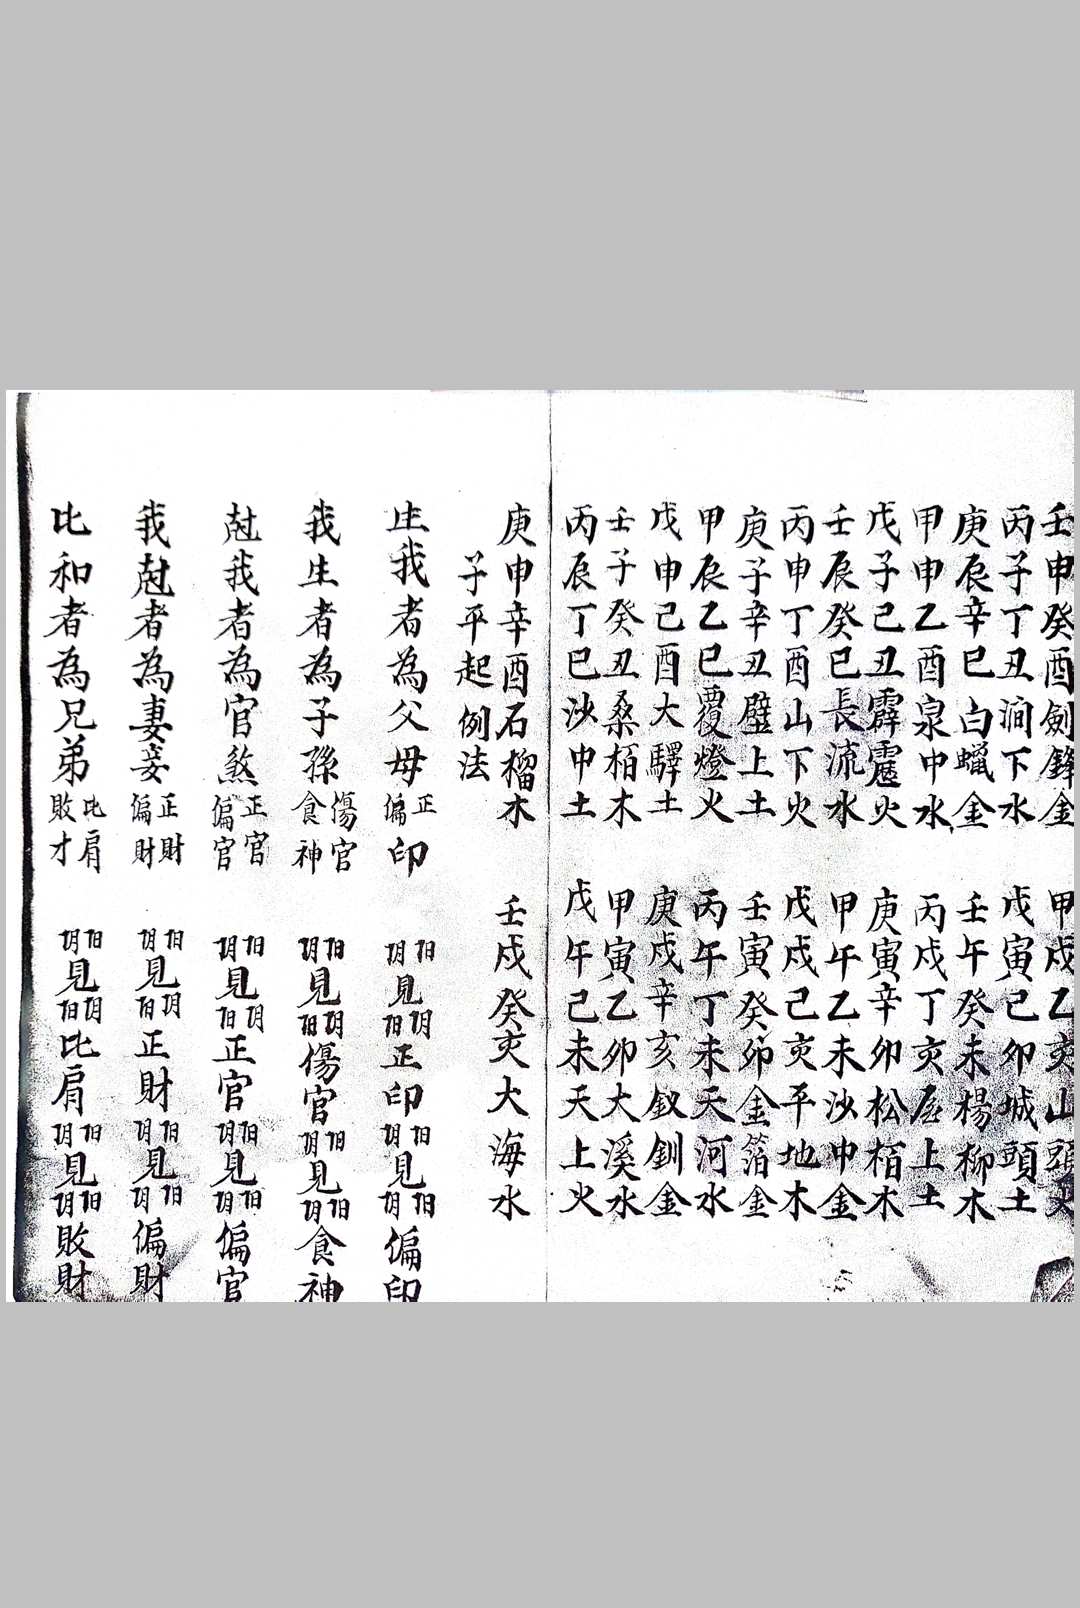 壬申癸酉劍鋒金　甲戌乙亥山頭火
丙子丁丑澗下水　戊寅己卯城頭土
庚辰辛巳白蠟金　壬午癸未楊柳木
甲申乙酉泉中水　丙戌丁亥屋上土
戊子己丑霹靂火　庚寅辛卯松栢木
壬辰癸巳長流水　甲午乙未沙中金
丙申丁酉山下火　戊戌己亥平地木
庚子辛丑壁上土　壬寅癸卯金箔金
甲辰乙巳覆燈火　丙午丁未天河水
戊申己酉大驛土　庚戌辛亥釵釧金
壬子癸丑桑栢木　甲寅乙卯大溪水
丙辰丁巳沙中土　戊午己未天上火
庚申辛酉石榴木　壬戌癸亥大海水
子平起例法
生我者為父母正偏印　阳阴見阴阳正印阳阴見阳阴偏印
我生者為子孫傷官食神　阳阴見阴阳傷官阳阴見阳阴食神
尅我者為官煞正官偏官　阳阴見阴阳正官阳阴見阳阴偏官
我尅者為妻妾正財偏財　阳阴見阴阳正財阳阴見阳阴偏財
比和者為兄弟比肩敗才　阳阴見阴阳比肩阳阴見阳阴敗財